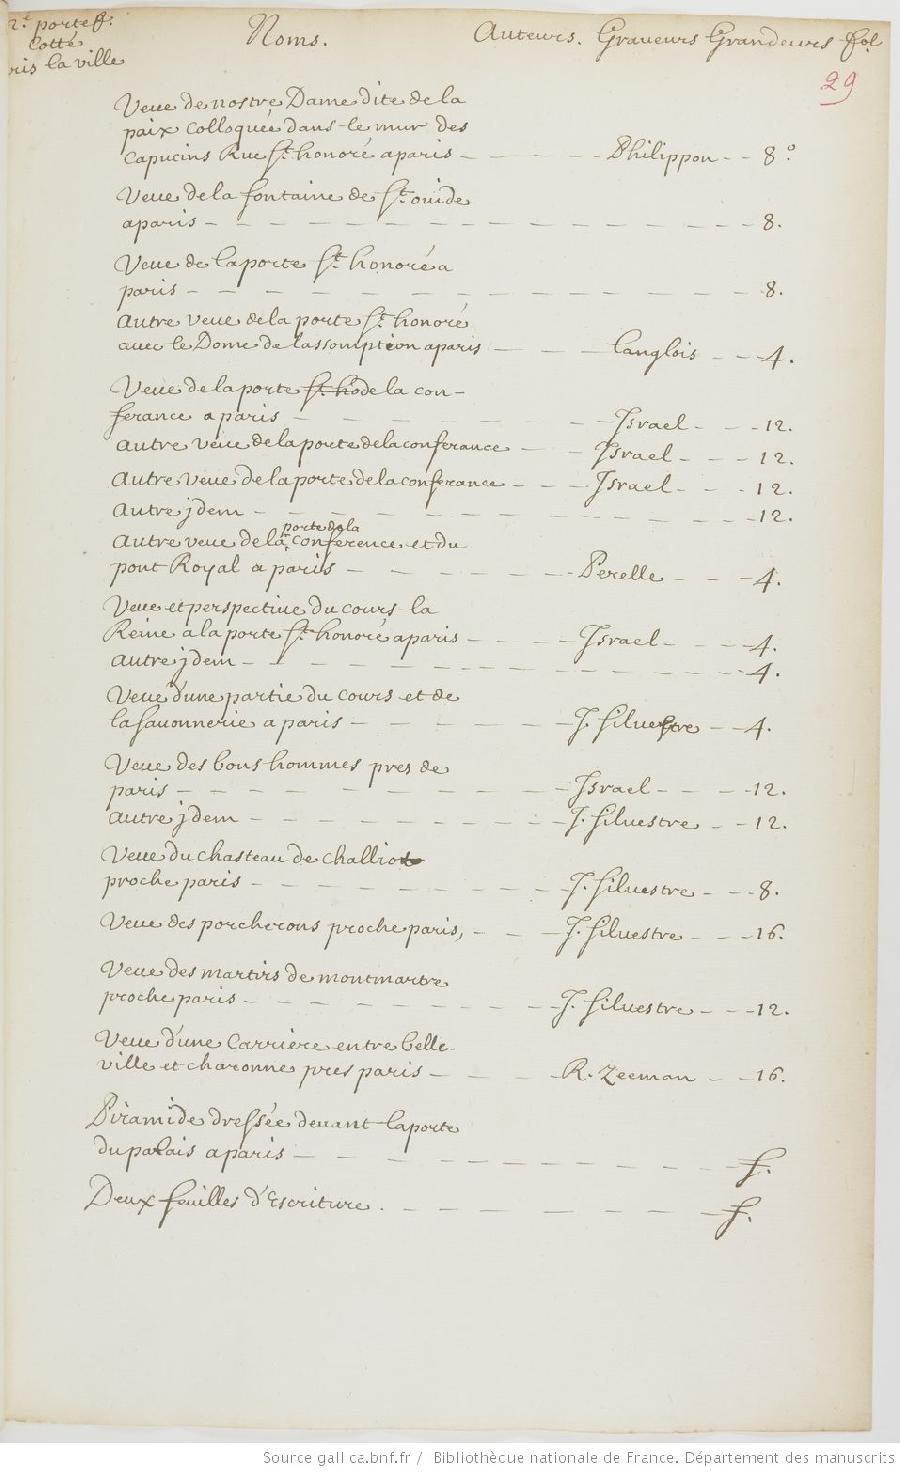 2.e portef.
Cotté
Paris la ville
Noms. Auteurs. Graveurs Grandeurs fol
29
Veue de nostre Dame dite de la
paix colloquée dans le mur des
Capucins Rue St. honoré a paris — Philippon — 8°.
Veue de la fontaine de St. ouide
a paris — 8.
Veue de la porte St. honoré a
paris — 8.
autre veue de la porte St. honoré
auec le Dome de lassomption a paris — Langlois — 4.
Veue de la porte St. ho de la con-
ferance a paris — Israel — 12.
autre veue de la porte de la conferance — Israel — 12.
autre veue de la porte de la conferance — Israel — 12.
autre jdem — 12.
porte de la
autre veue de la conference et du
pont Royal a paris — Perelle — 4.
Veue et perspectiue du cours la
Reine a la porte St. honoré a paris — Israel — 4.
autre jdem — 4.
Veue d'une partie du cours et de
la sauonnerie a paris — J. Siluestre — 4.
Veue des bons hommes pres de
paris — Israel — 12.
autre jdem — J. Siluestre — 12.
Veue du chasteau de challiot
proche paris — J. Siluestre — 8.
Veue des porcherons proche paris, — J. Siluestre — 16.
Veue des martirs de montmartre
proche paris — J. Siluestre — 12.
Veue d'une Carriere entre belle-
ville et charonne pres paris — R. Zeeman — 16.
Piramide dressée deuant la porte
du palais a paris — f.
Deux feuilles d'Escriture. — f.
Source gallica.bnf.fr / Bibliothèque nationale de France. Département des manuscrits